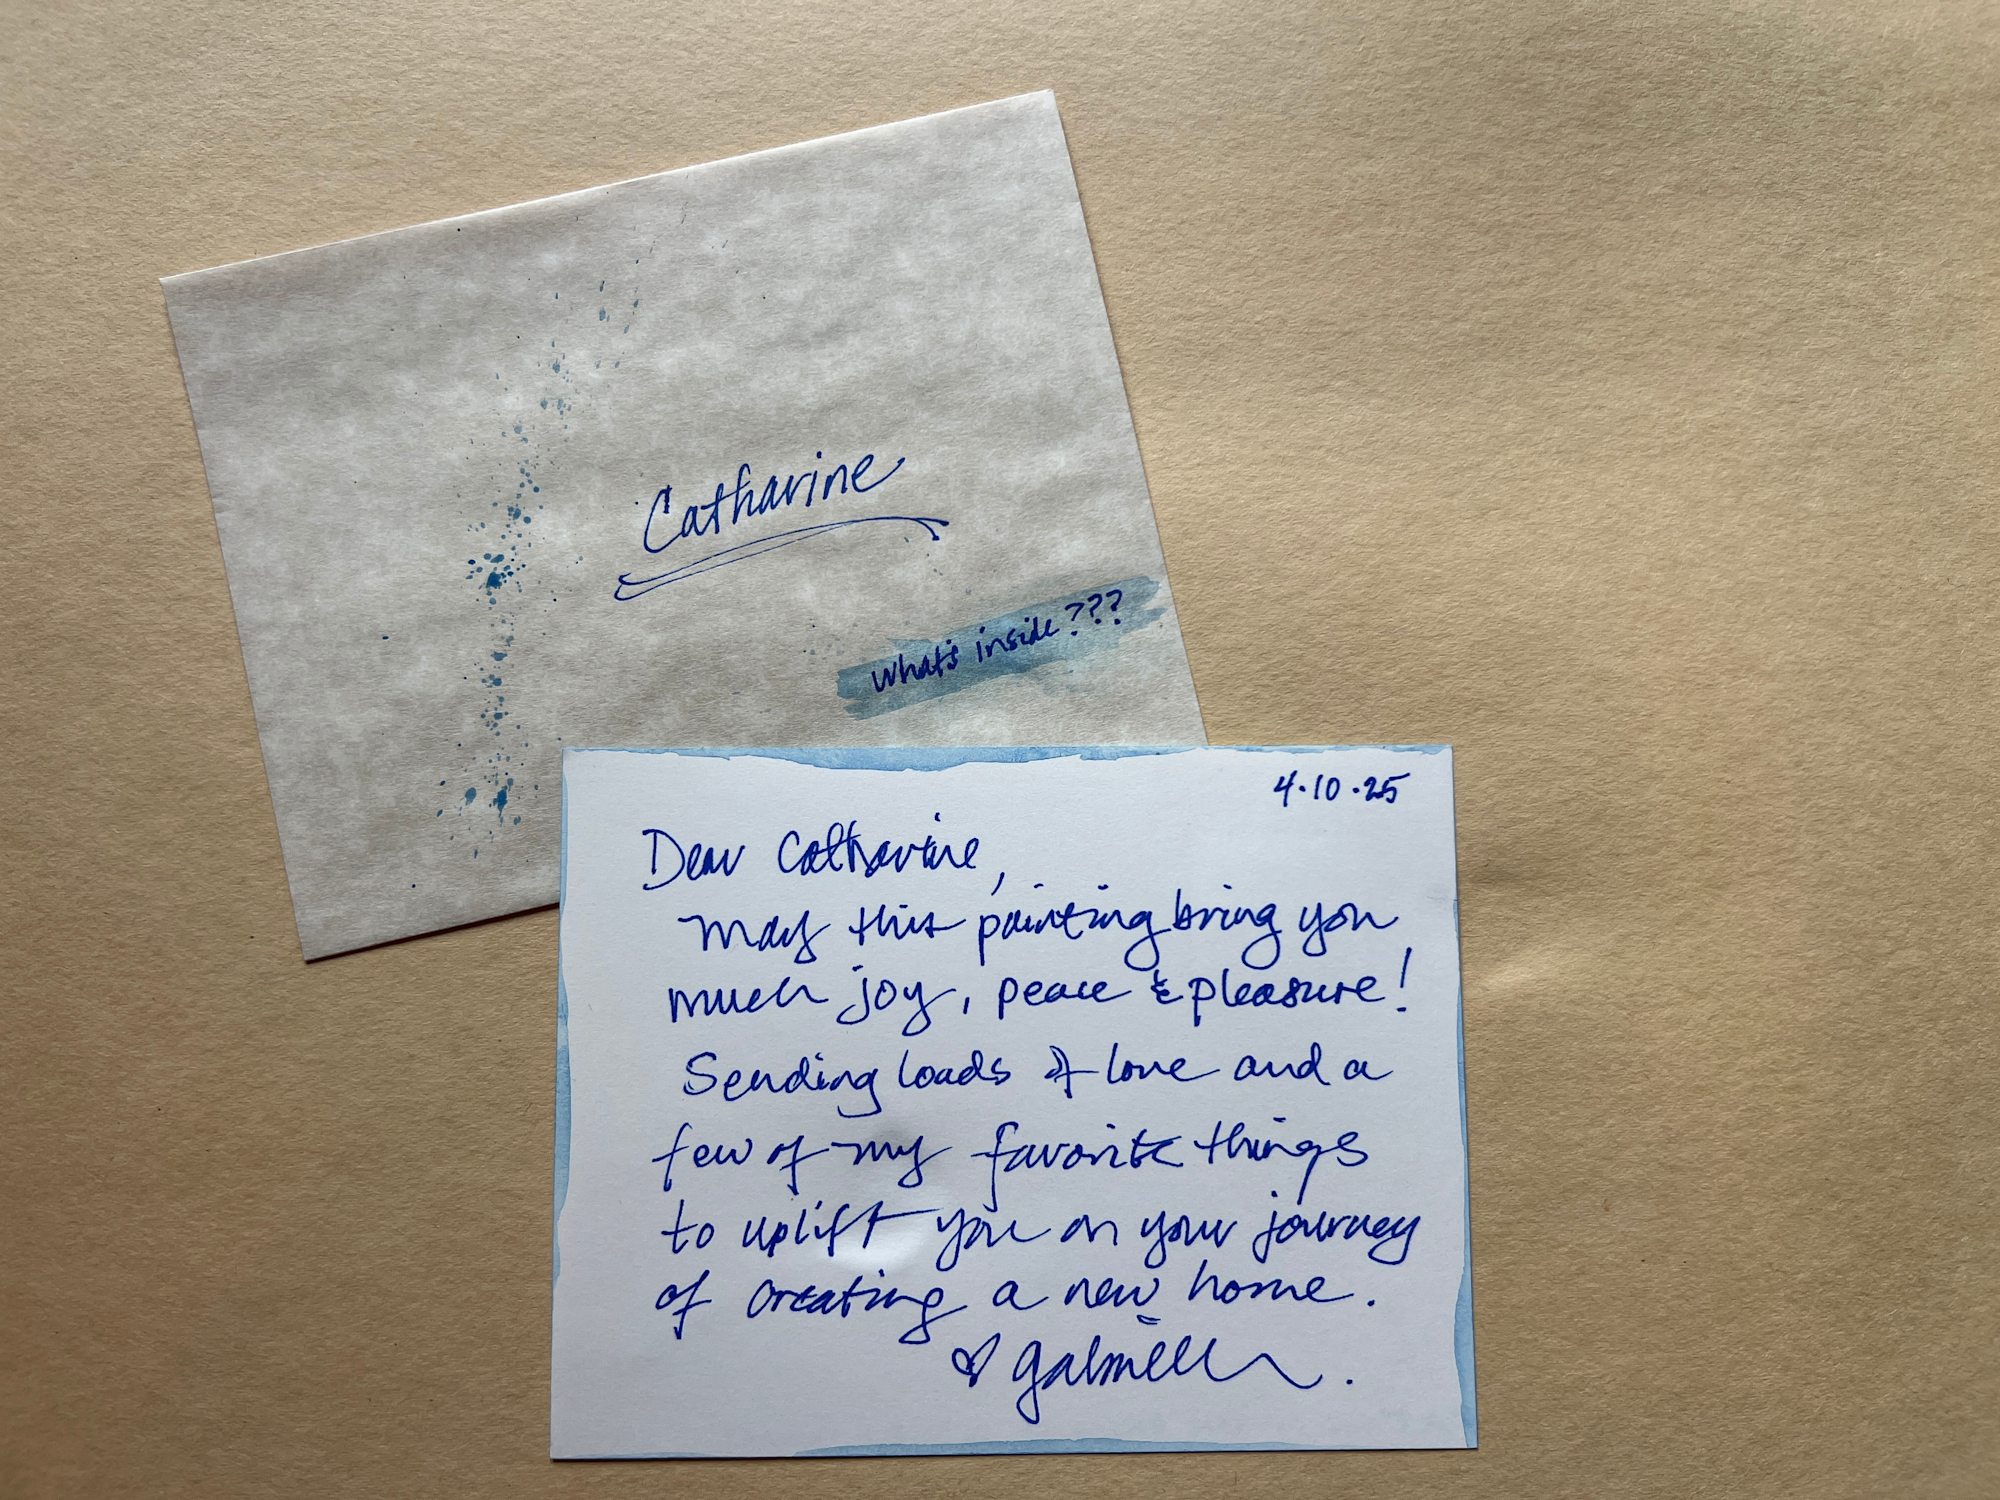 Catharine
What's inside???
4.10.25
Dear Catharine,
May this painting bring you
much joy, peace & pleasure!
Sending loads of love and a
few of my favorite things
to uplift you on your journey
of creating a new home.
♡ Gabrielle.